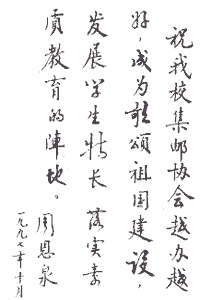 祝我校集邮协会越办越
好，成为歌頌祖国建設，
发展学生特长 落实素
质教育的陣地。周恩泉
一九九七年十月